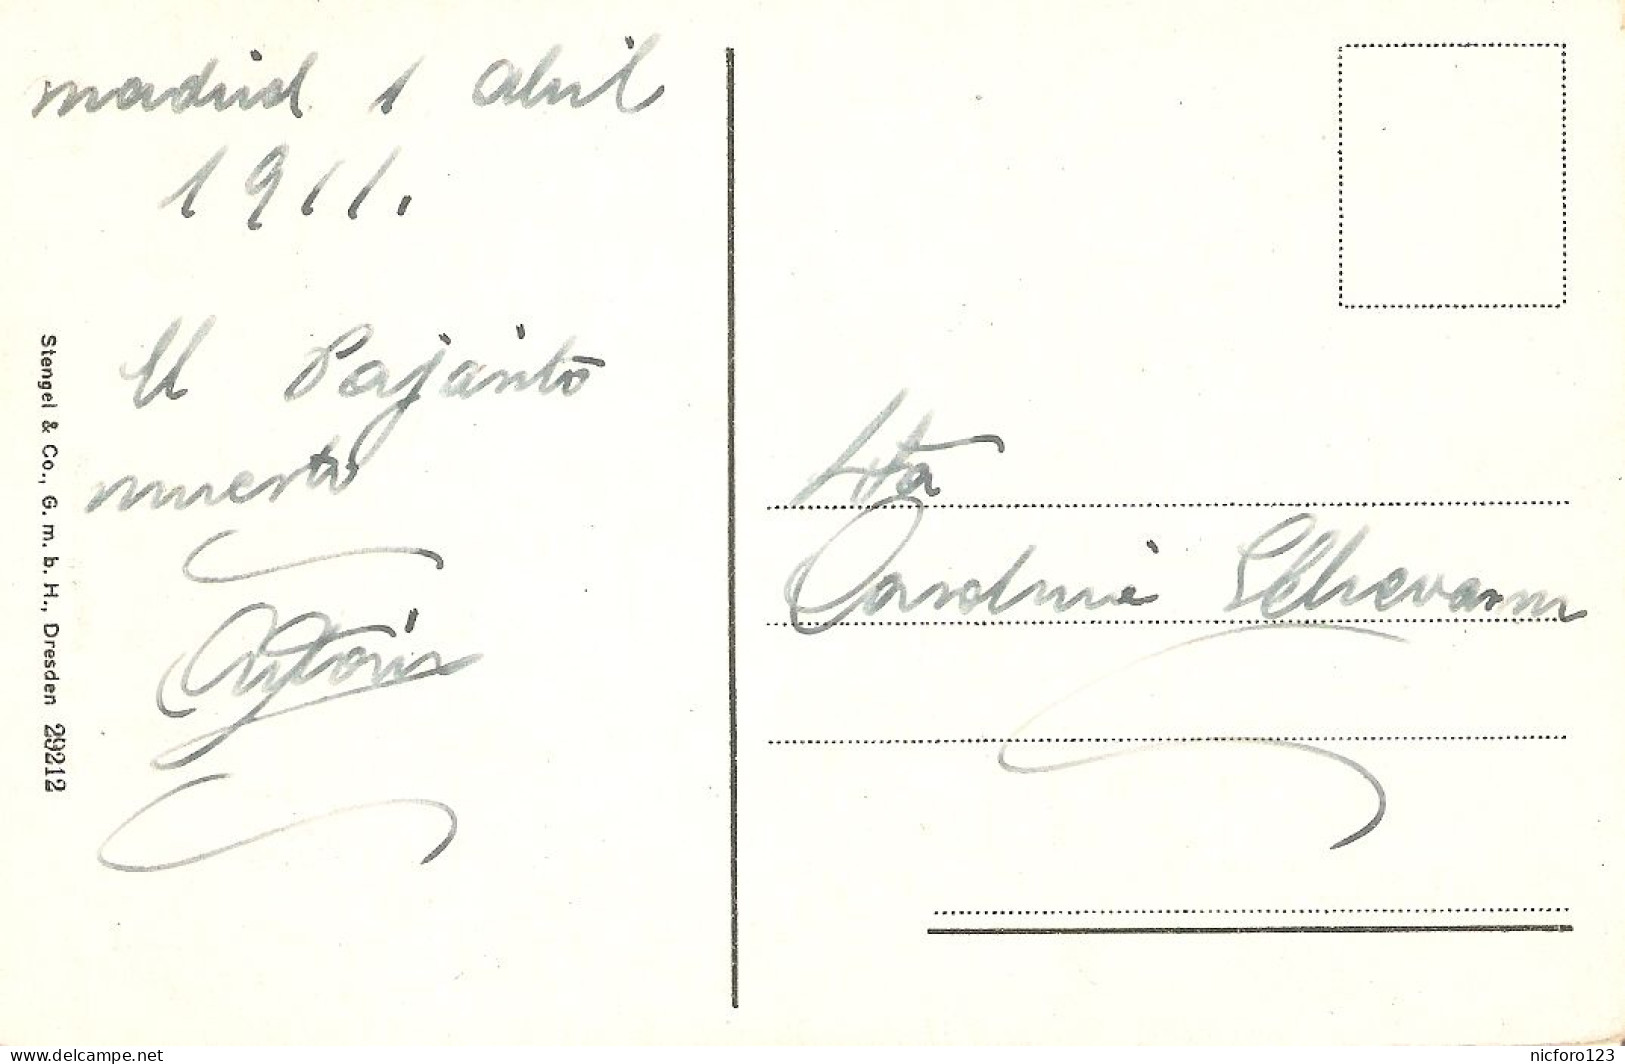 madrid 1 abril
1911.
El Pajarito
muerto
Antonio
Stengel & Co., G. m. b. H., Dresden 29212
Sta
delcampe.net
nicforo123